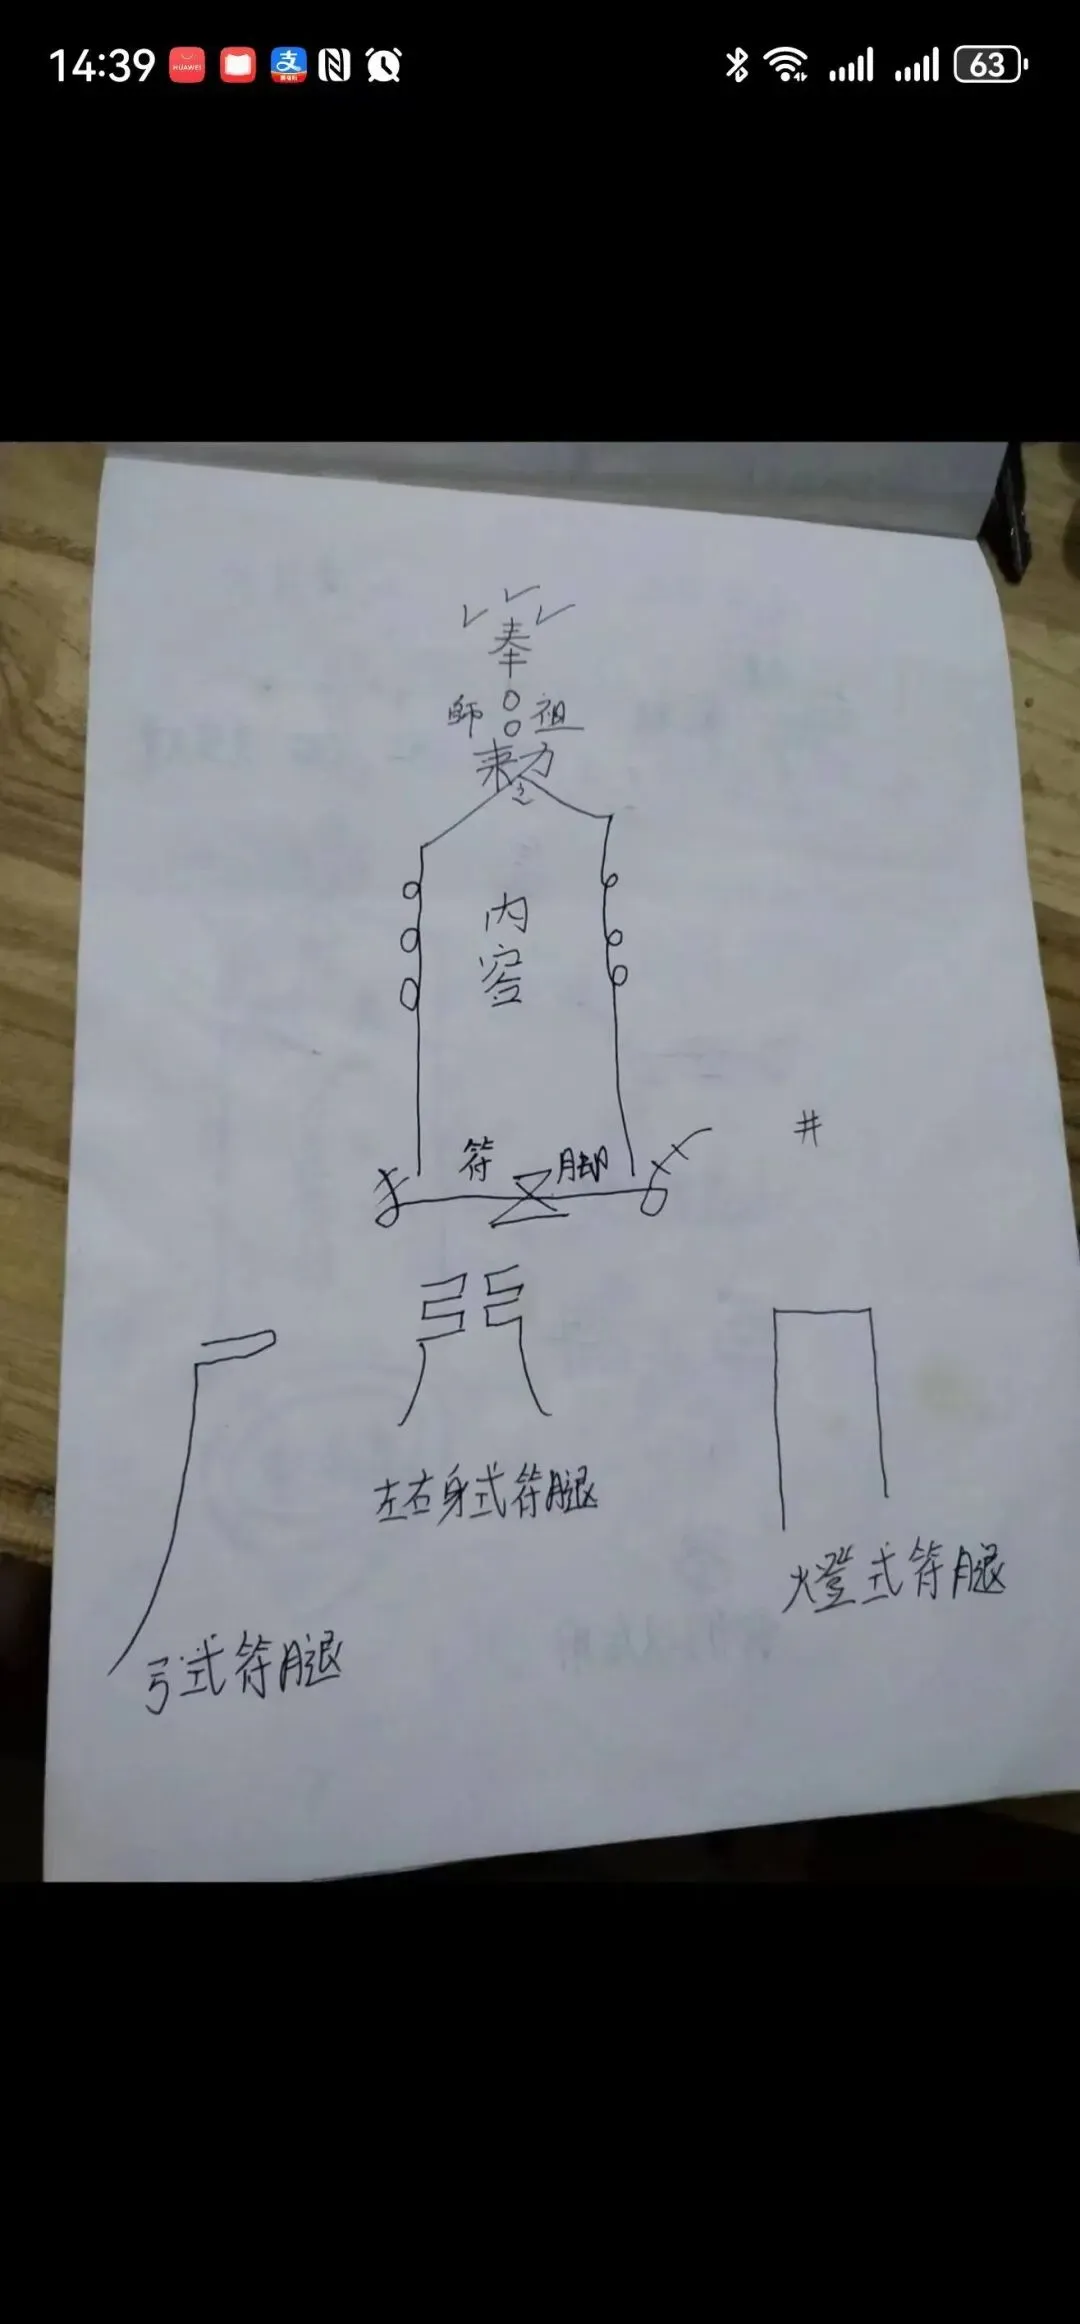 14:39
HUAWEI
支
63
奉
師 祖
勅
内
容
符 脚
井
左右身式符腿
燈式符腿
弓式符腿